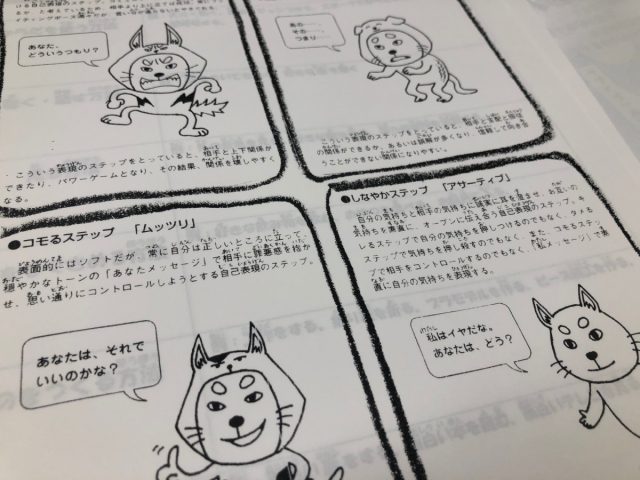 る自己表現のステップ。
あなた、
どういうつもり？
こういう表現のステップをとっていると、相手と上下関係が
できたり、パワーゲームとなり、その結果、関係を壊しやすく
なる。
あの…、
その…、
つまり…
こういう表現のステップをとっていると、相手と支配と服従
の関係ができるか、あるいは誤解が多くなり、信頼して向き合
うことができない関係になりやすい。
●コモるステップ 「ムッツリ」
表面的にはソフトだが、常に自分は正しいところに立って、
穏やかなトーンの「あなたメッセージ」で相手に罪悪感を抱か
せ、思い通りにコントロールしようとする自己表現のステップ。
あなたは、それで
いいのかな？
●しなやかステップ 「アサーティブ」
自分の気持ちと相手の気持ちに誠実に耳を澄ませ、お互いの
気持ちを素直に、オープンに伝え合う自己表現のステップ。キ
レるステップで自分の気持ちを押しつけるのでもなく、タメる
ステップで気持ちを押し殺すのでもなく、また、コモるステッ
プで相手をコントロールするのでもなく、「私メッセージ」で素
直に自分の気持ちを表現する。
私はイヤだな。
あなたは、どう？